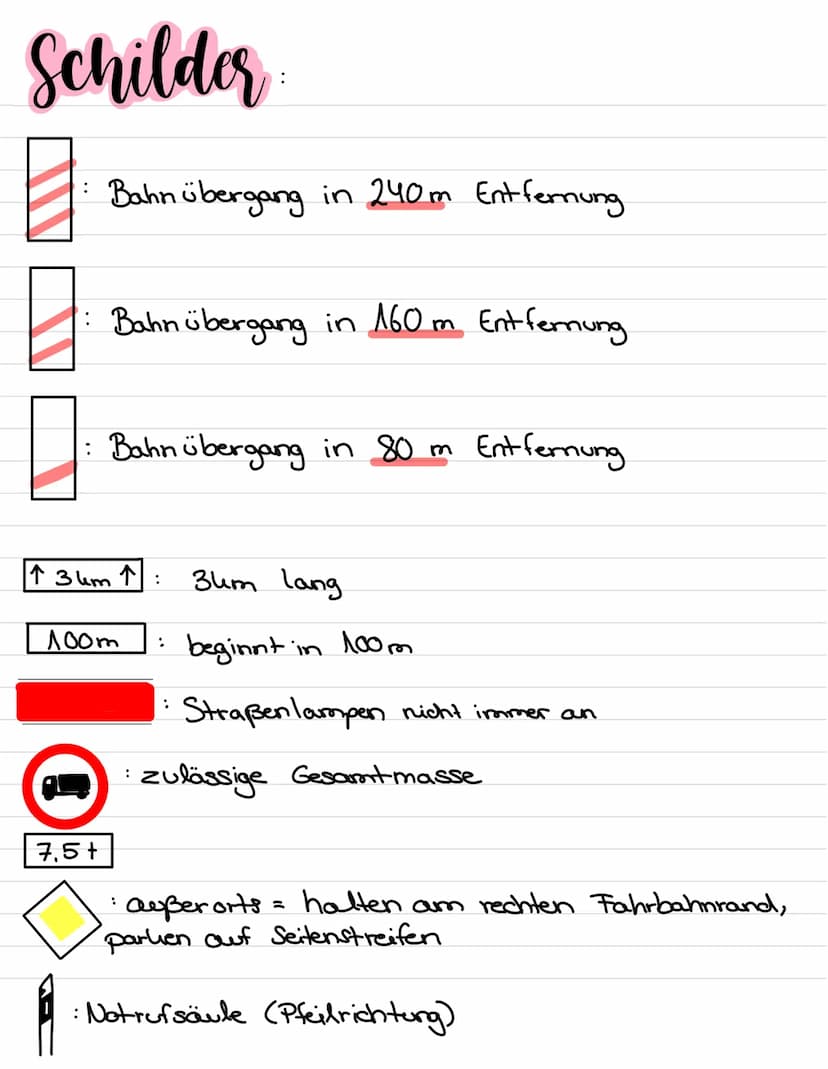 Schilder:
: Bahnübergang in 240 m Entfernung
: Bahnübergang in 160 m Entfernung
: Bahnübergang in 80 m Entfernung
↑ 3 km ↑ : 3 km lang
100 m : beginnt in 100 m
: Straßenlampen nicht immer an
: zulässige Gesamtmasse
7,5 t
: außerorts = halten am rechten Fahrbahnrand,
parken auf Seitenstreifen
: Notrufsäule (Pfeilrichtung)